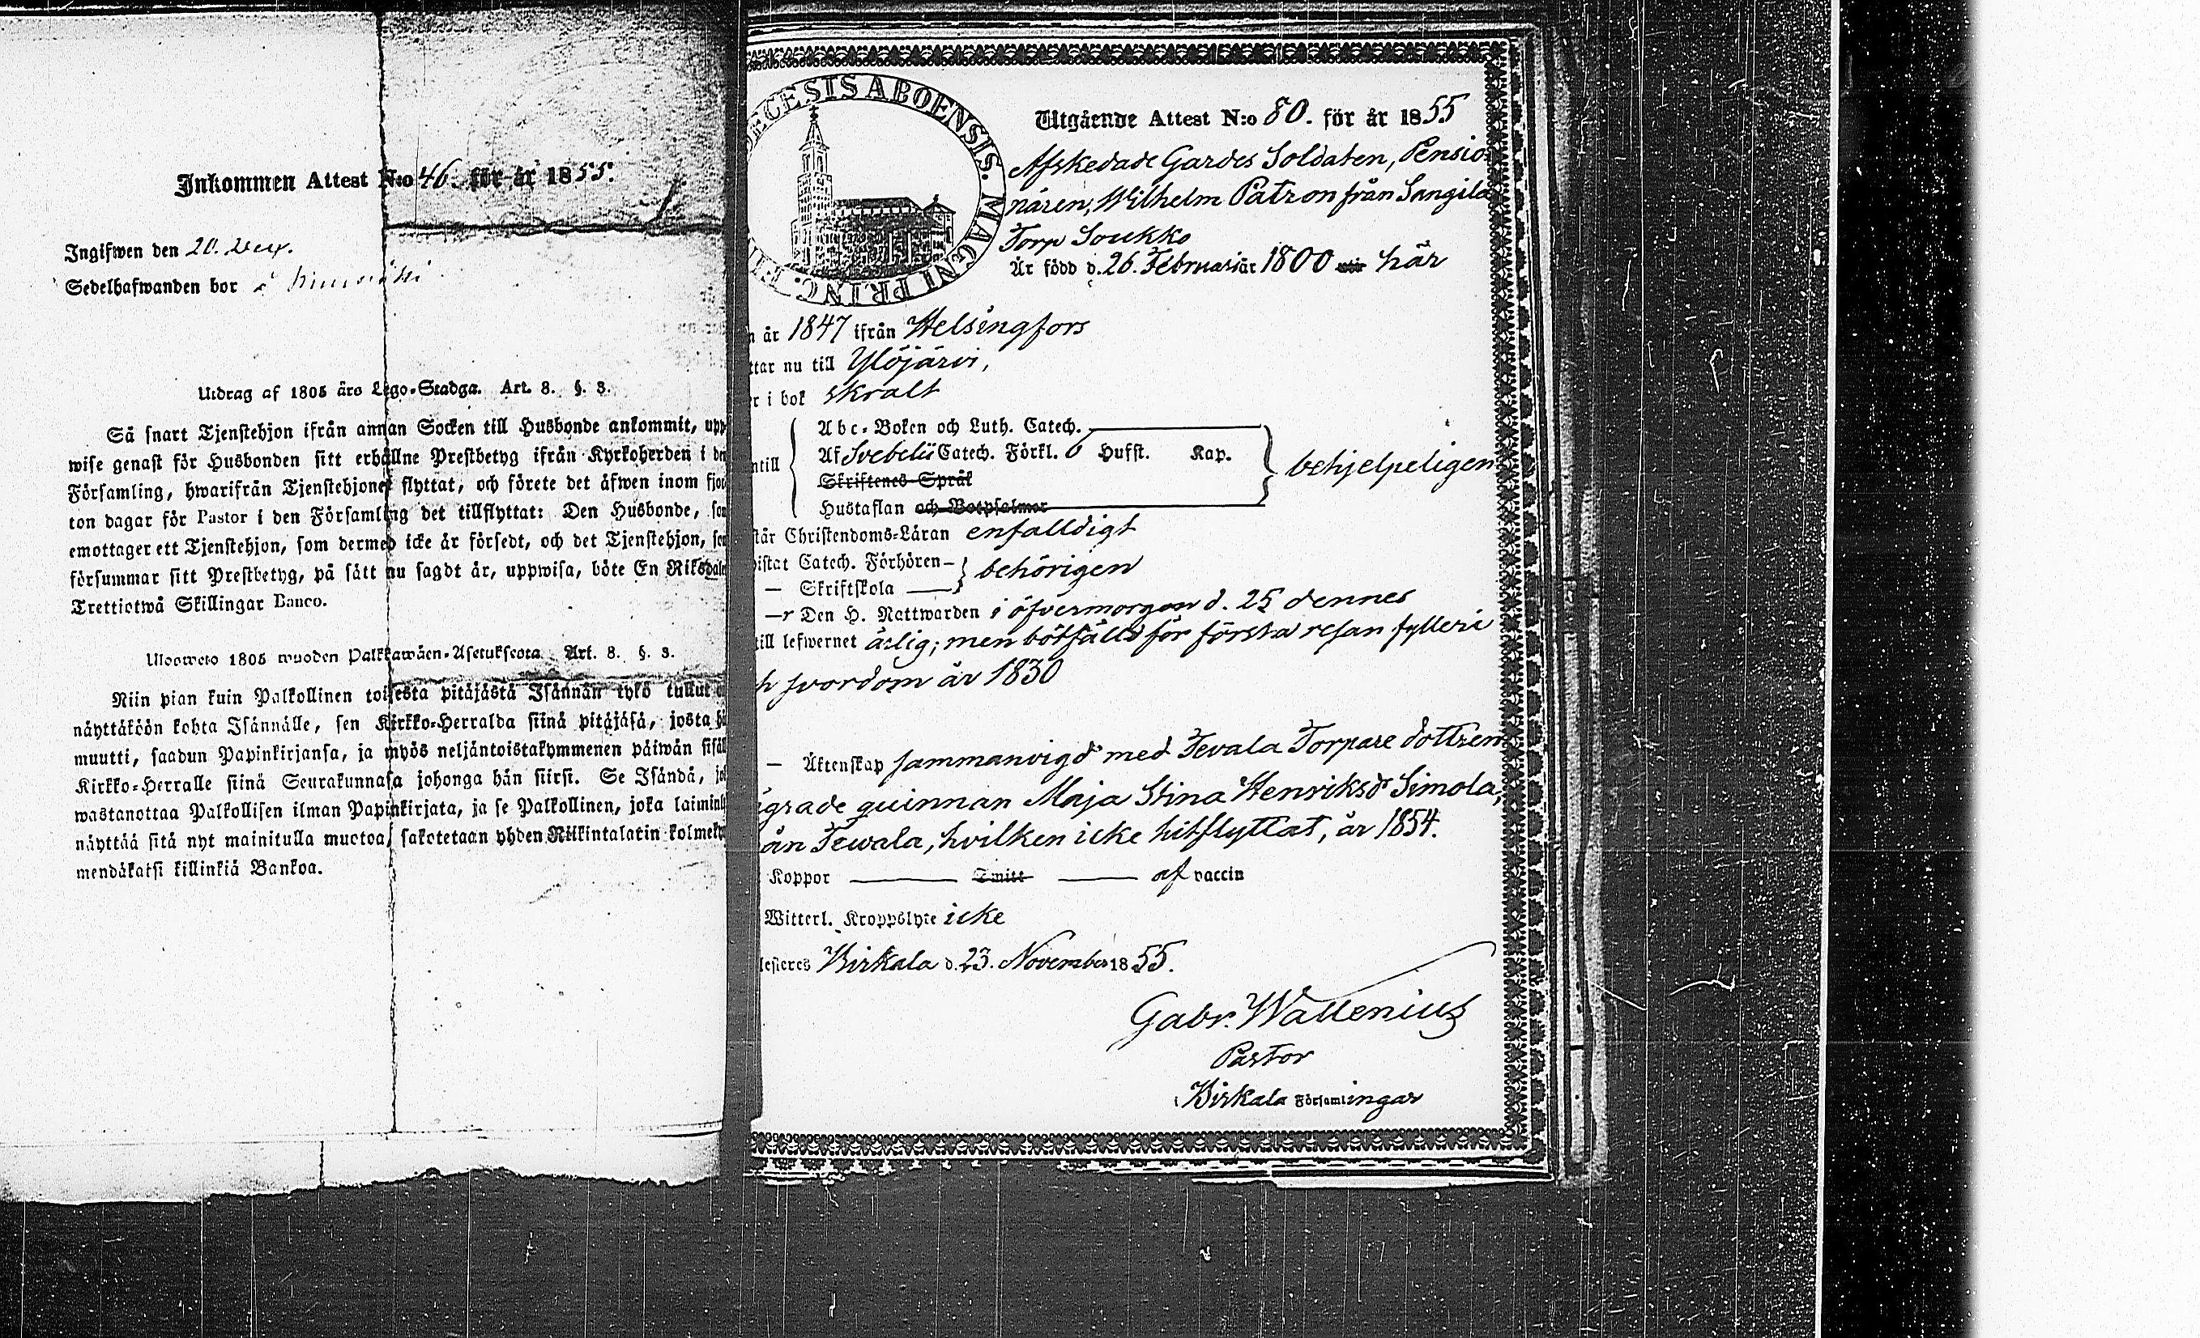 Inkommen Attest N:o 46. för år 1855.
Ingifwen den 20. Dec.
Sedelhafwanden bor
Utdrag af 1805 års Lego-Stadga. Art. 8. §. 3.
Så snart Tjenstehjon ifrån annan Socken till Husbonde ankommit, upp
wise genast för Husbonden sitt erhållne Prestbetyg ifrån Kyrkoherden i den
Församling, hwarifrån Tjenstehjonet flyttat, och förete det äfwen inom fjor
ton dagar för Pastor i den Församling det tillflyttat: Den Husbonde, som
emottager ett Tjenstehjon, som dermed icke är försedt, och det Tjenstehjon, som
försummar sitt Prestbetyg, på sätt nu sagdt är, uppwisa, böte En Riksdaler
Trettiotwå Skillingar Banco.
Uloswето 1805 wuoden Palkkawäen-Asetuksesta Art. 8. §. 3.
Niin pian kuin Palkollinen toisesta pitäjästä Isännän tykö tullut
näyttäköön kohta Isännälle, sen Kirkko-Herralda siinä pitäjäsä, josta hän
muutti, saadun Papinkirjansa, ja myös neljäntoistakymmenen päiwän sisäl
Kirkko-Herralle siinä Seurakunnasa johonga hän siirsi. Se Isändä, jo
wastanottaa Palkollisen ilman Papinkirjata, ja se Palkollinen, joka laiminly
näyttää sitä nyt mainitulla muotoa, sakotetaan yhden Riikintalarin kolmeky
mendäkaksi killinkiä Bankoa.
DIOECESIS ABOENSIS. MAGNI PRINC. FIN
Utgående Attest N:o 80. för år 1855
Afskedade Gardes Soldaten, Pensio-
nären, Wilhelm Patron från Sangila
Torp Soukko
Är född d. 26. Februari år 1800 uti här
n år 1847 ifrån Helsingfors
ttar nu till Ylöjärvi,
r i bok skralt
Abc-Boken och Luth. Catech.
ntill Af Svebelii Catech. Förkl. 6 Hufst. Kap. behjelpeligen
Skriftenes Språk
Hustaflan och Botpsalmer
står Christendoms-Läran enfalldigt
vistat Catech. Förhören- behörigen
— Skriftskola —
—r Den H. Nattwarden i öfvermorgon d. 25 dennes
till lefwernet ärlig; men bötfälld för första resan fylleri
h svordom år 1830
— Äktenskap sammanvigd med Tevala Torpare dottren
grade quinnan Maja Stina Henriksdr Simola,
ån Tewala, hvilken icke hitflyttat, år 1854.
Koppor — Smitt — af vaccin
Witterl. Kroppslyte icke
lesteres Birkala d. 23. November 1855.
Gabr. Wallenius
Pastor
i Birkala Församlingar